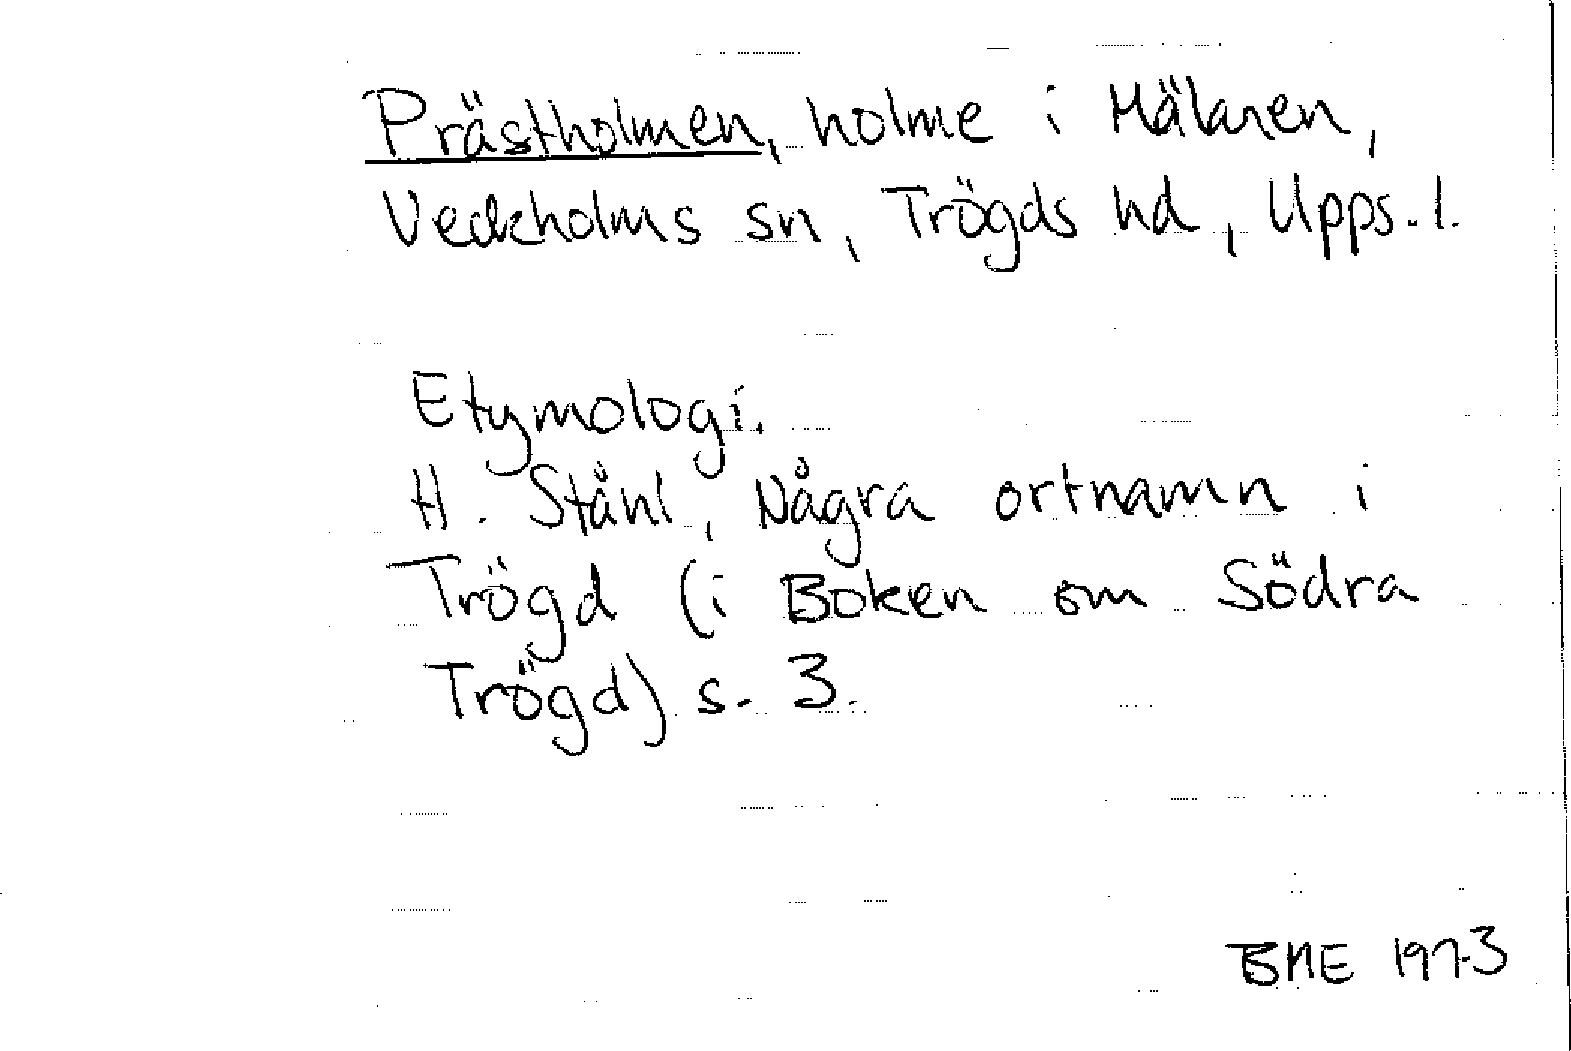 Prästholmen, holme i Mälaren,
Veckholms sn, Trögds hd, Upps. l.
Etymologi.
H. Ståhl, Några ortnamn i
Trögd (i Boken om Södra
Trögd) s. 3.
BME 1973